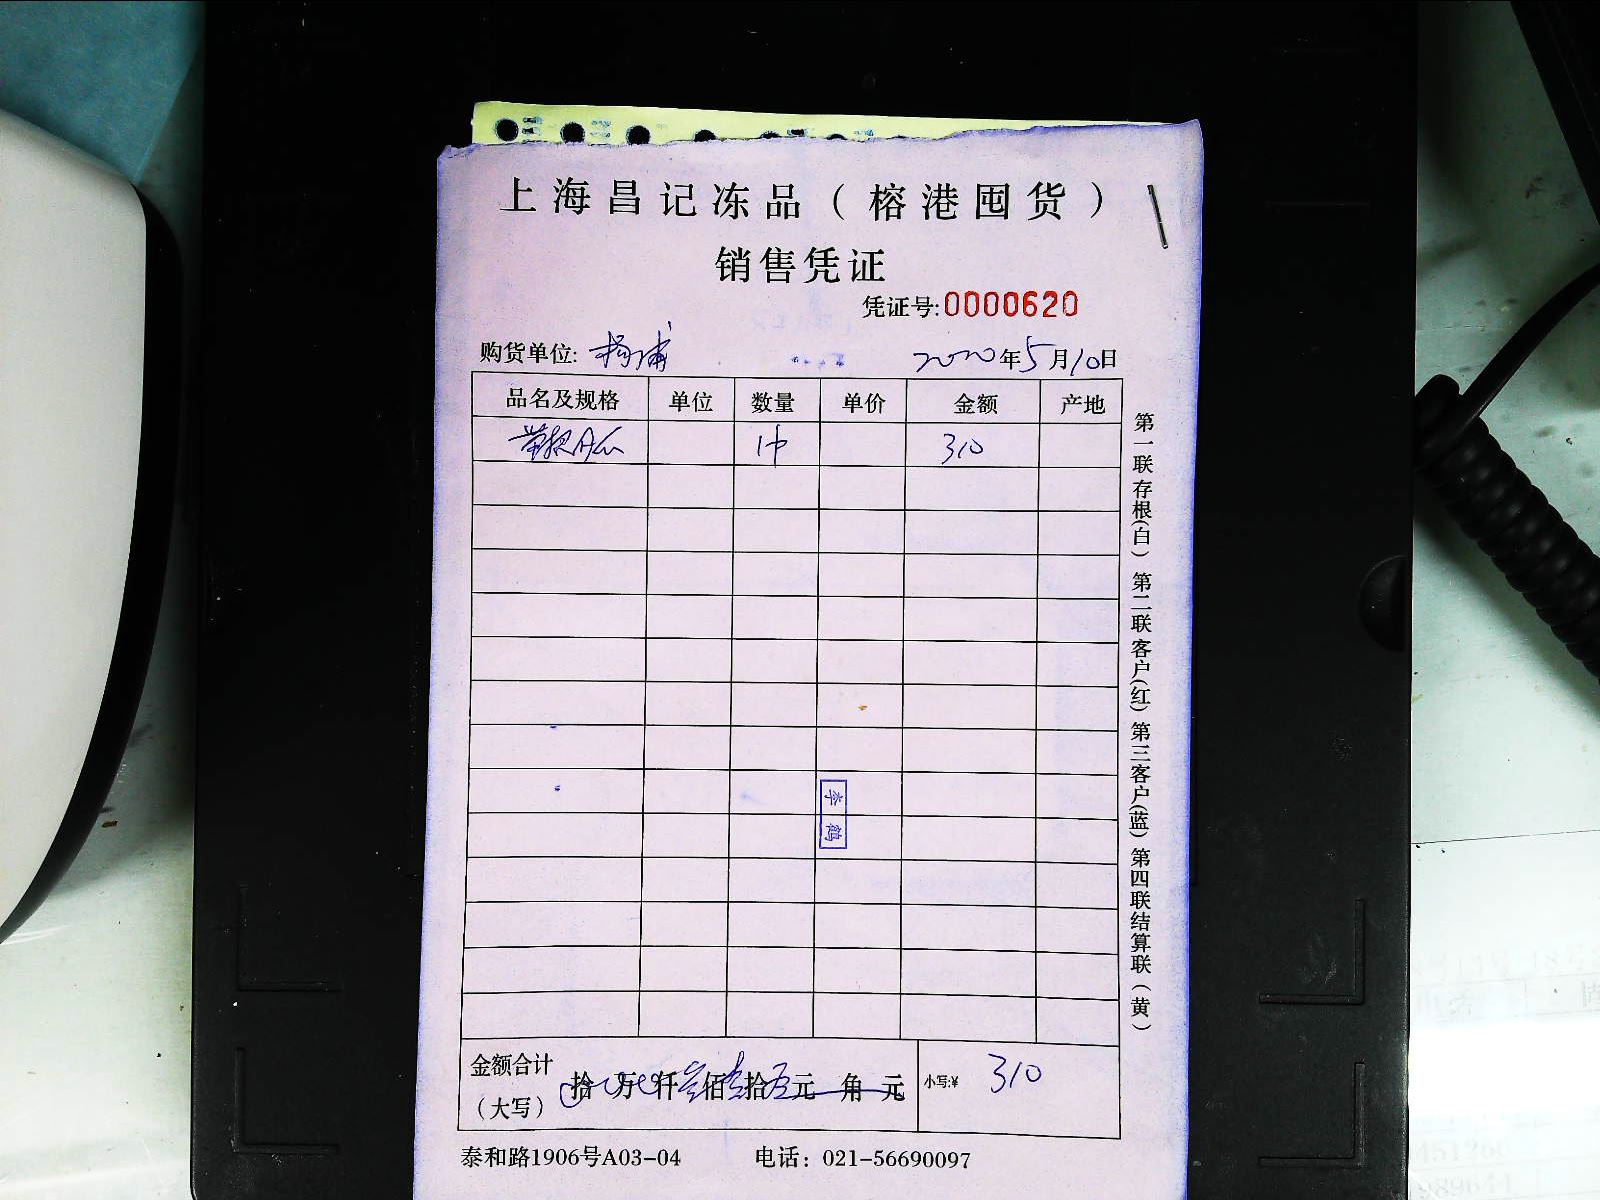 上海昌记冻品（榕港囤货）
销售凭证
凭证号:0000620
购货单位: 杨浦 2020年5月10日
品名及规格 单位 数量 单价 金额 产地
1件 310
李鹤
金额合计（大写） 拾 万 仟叁佰壹拾 元 角 元 小写:¥ 310
泰和路1906号A03-04 电话：021-56690097
第一联存根(白) 第二联客户(红) 第三客户(蓝) 第四联结算联(黄)